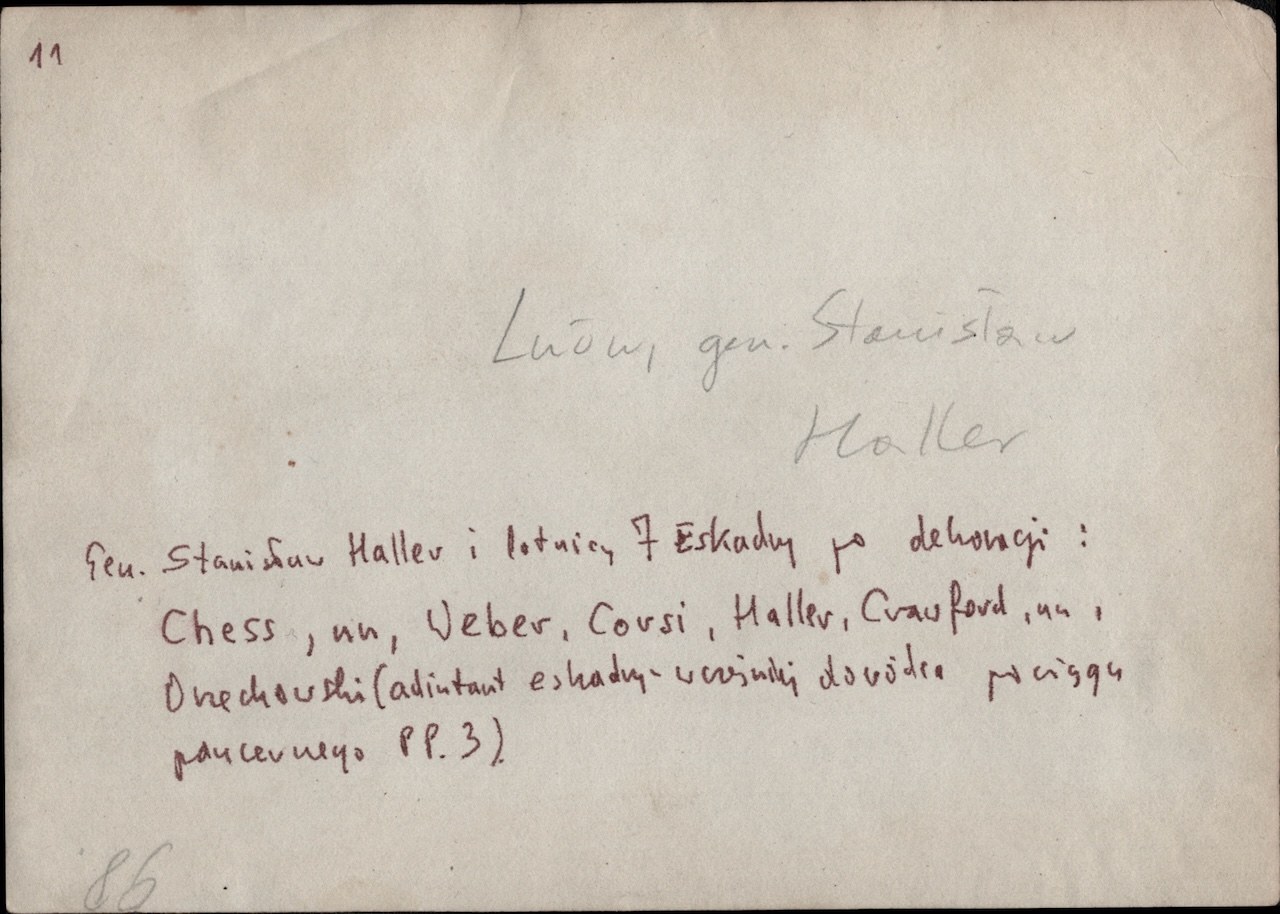 11
Lwów, gen. Stanisław
Haller
Gen. Stanisław Haller i lotnicy 7 Eskadry po dekoracji :
Chess, nn, Weber, Corsi, Haller, Crawford, nn,
Orzechowski (adiutant eskadry - wcześniej dowódca pociągu
pancernego PP. 3)
86